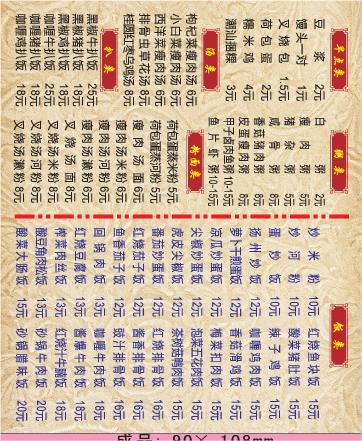 早点类
豆浆 2元
馒头一对 1元
叉烧包 1.5元
荷包蛋 2元
糯米鸡 4元
潮汕捆粿 3元
汤类
枸杞菜瘦肉汤 6元
小白菜瘦肉汤 6元
西洋菜瘦肉汤 6元
排骨虫草花汤 8元
桂圆红枣乌鸡汤 8元
扒类
黑椒牛扒饭 25元
黑椒猪扒饭 18元
黑椒鸡扒饭 18元
咖喱牛扒饭 25元
咖喱猪扒饭 18元
咖喱鸡扒饭 18元
粥类
白粥 2元
瘦肉粥 5元
猪杂粥 5元
咸骨粥 8元
香菇猪肉粥 8元
皮蛋瘦肉粥 8元
甲子卤肉鱼粥 10-15元
鱼片虾粥 10-15元
粉面类
荷包蛋蒸米粉 5元
荷包蛋蒸河粉 5元
瘦肉汤面 6元
瘦肉汤米粉 6元
瘦肉汤河粉 6元
瘦肉汤濑粉 6元
叉烧汤面 8元
叉烧汤米粉 8元
叉烧汤河粉 8元
叉烧汤濑粉 8元
饭类
炒米粉 10元
炒河粉 10元
蛋炒饭 10元
扬州炒饭 12元
萝卜干煎蛋饭 12元
凉瓜炒蛋饭 12元
尖椒炒蛋饭 12元
虎皮尖椒饭 12元
番茄炒蛋饭 12元
红烧茄子饭 12元
鱼香茄子饭 12元
回锅肉饭 12元
红烧豆腐饭 13元
榨菜肉丝饭 13元
酸豆角肉松饭 13元
酸菜大肠饭 15元
红烧鱼块饭 15元
酸菜猪肚饭 15元
辣子鸡饭 15元
咖喱鸡肉饭 15元
香菇滑鸡饭 15元
梅菜扣肉饭 15元
泡菜五花肉饭 15元
茶树菇鸭肉饭 15元
红烧排骨饭 16元
酱香排骨饭 16元
豉汁排骨饭 16元
酱爆牛肉饭 18元
红烧汁牛腩饭 18元
砂锅牛肉饭 20元
砂锅腊味饭 20元
成品：90×108mm